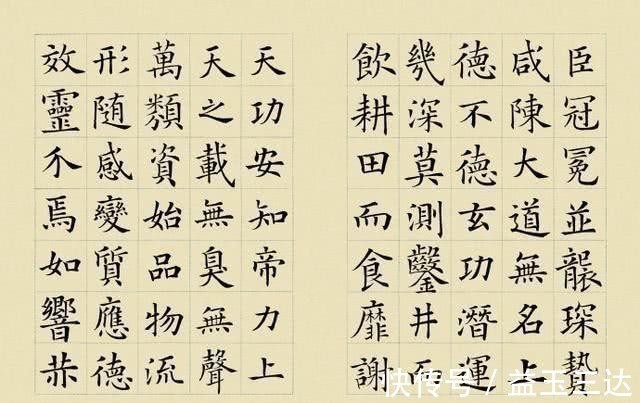 臣冠冕並襲琛贄
咸陳大道無名上
德不德玄功潛運
幾深莫測鑿井而
飲耕田而食靡謝
天功安知帝力上
天之載無臭無聲
萬類資始品物流
形隨感變質應德
效靈介焉如響
快传号 / 益玉王达